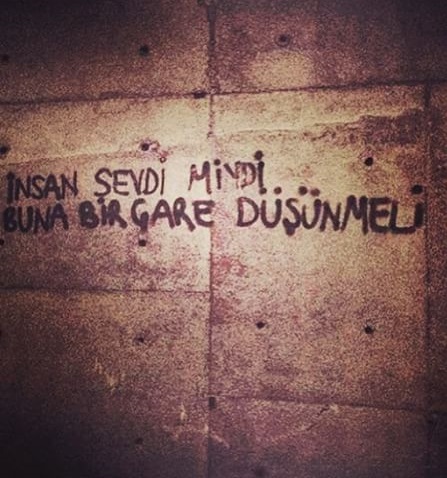 İNSAN SEVDİ MİYDİ
BUNA BİR ÇARE DÜŞÜNMELİ